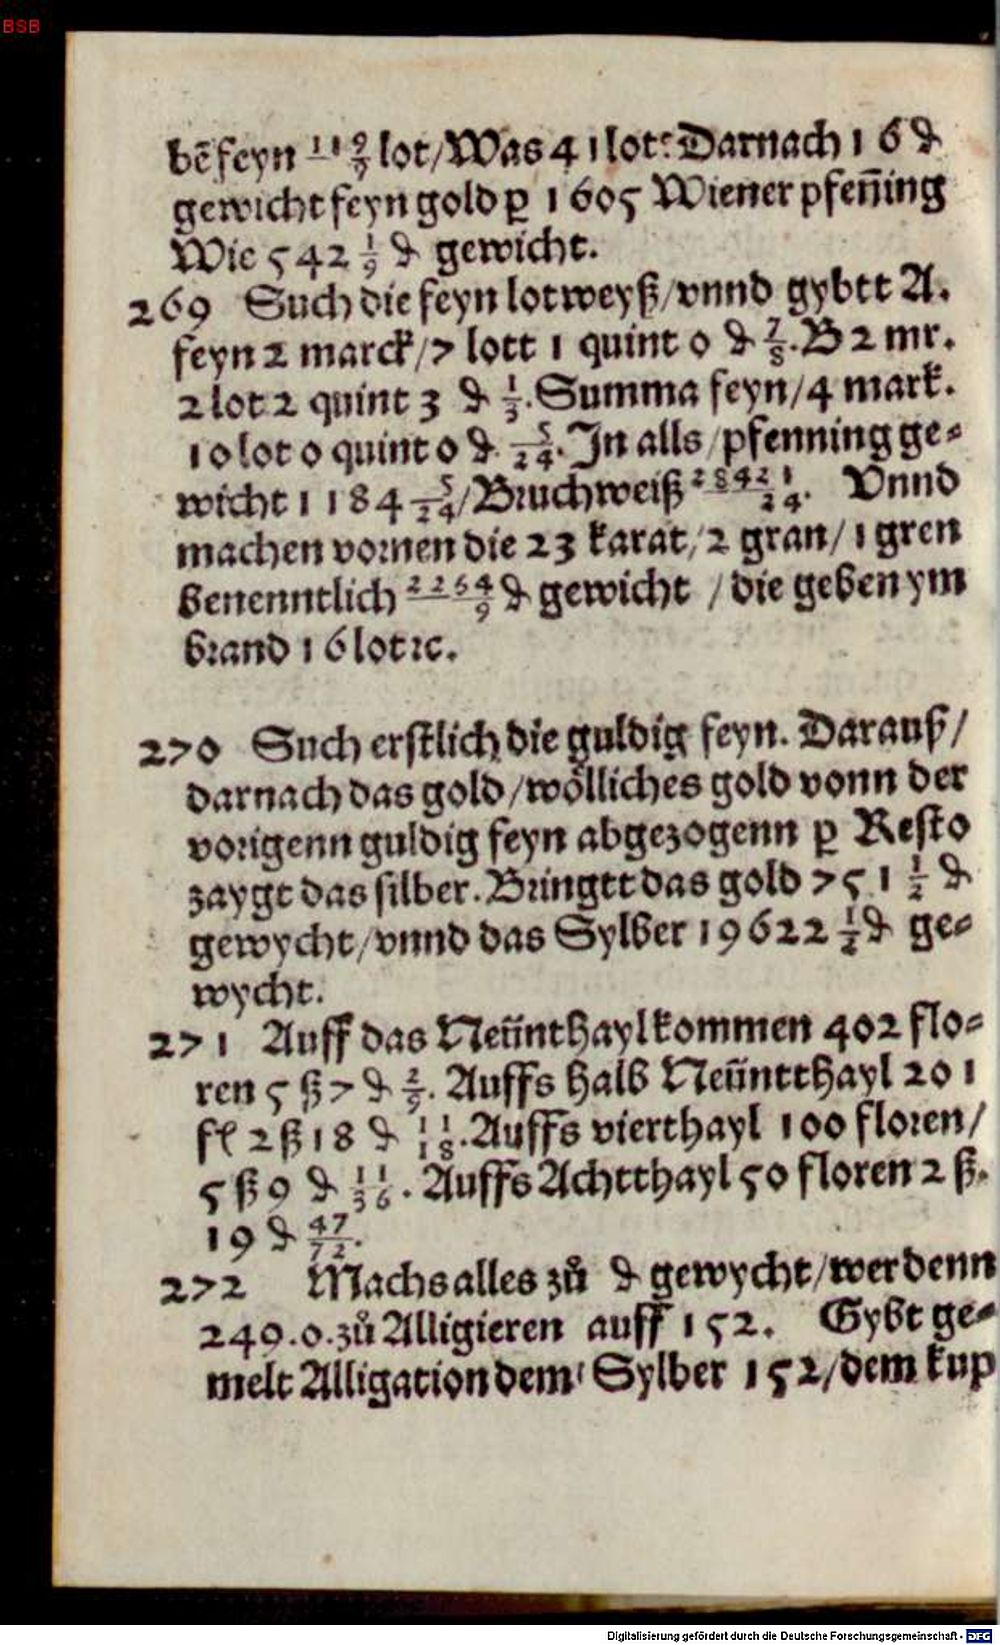 BSB
bē feyn 119/9 lot/Was 41 lot: Darnach 1 6 ₰
gewicht feyn gold ꝑ 1605 Wiener pfeñing
Wie 542 1/9 ₰ gewicht.
269 Such die feyn lotweyß/vnnd gybtt A.
feyn 2 marck/7 lott 1 quint 0 ₰ 7/8. B 2 mr.
2 lot 2 quint 3 ₰ 1/3. Summa feyn/4 mark.
10 lot 0 quint 0 ₰ 5/24. Jn alls/pfenning ge⸗
wicht 1184 5/24/Bruchweiß 28421/24. Vnnd
machen vornen die 23 karat/2 gran/1 gren
benenntlich 2264/9 ₰ gewicht /die geben ym
brand 16 lot ꝛc.
270 Such erstlich die guldig feyn. Darauß/
darnach das gold/wölliches gold vonn der
vorigenn guldig feyn abgezogenn ꝑ Resto
zaygt das silber. Bringtt das gold 751 1/2 ₰
gewycht/vnnd das Sylber 19622 1/2 ₰ ge⸗
wycht.
271 Auff das Neüntthayl kommen 402 flo⸗
ren 5 ß 7 ₰ 2/9. Auffs halb Neüntthayl 201
fl 2 ß 18 ₰ 11/18. Auffs vierthayl 100 floren/
5 ß 9 ₰ 11/36. Auffs Achtthayl 50 floren 2 ß.
19 ₰ 47/72.
272 Machs alles zů ₰ gewycht/werdenn
249.0. zů Alligieren auff 152. Gybt ge⸗
melt Alligation dem Sylber 152/dem kup
Digitalisierung gefördert durch die Deutsche Forschungsgemeinschaft - DFG